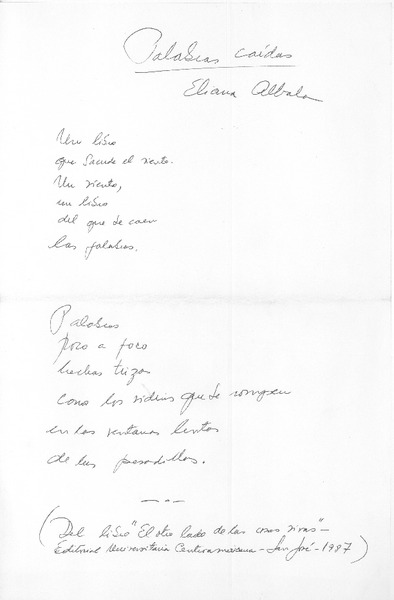 Palabras caídas
Eliana Albala
Un libro
que sacude el viento.
Un viento,
un libro
del que se caen
las palabras.
Palabras
poco a poco
hechas trizas
como los vidrios que se rompen
en las ventanas lentas
de las pesadillas.
(Del libro "El otro lado de las cosas vivas" -
Editorial Universitaria Centroamericana - San José - 1987)